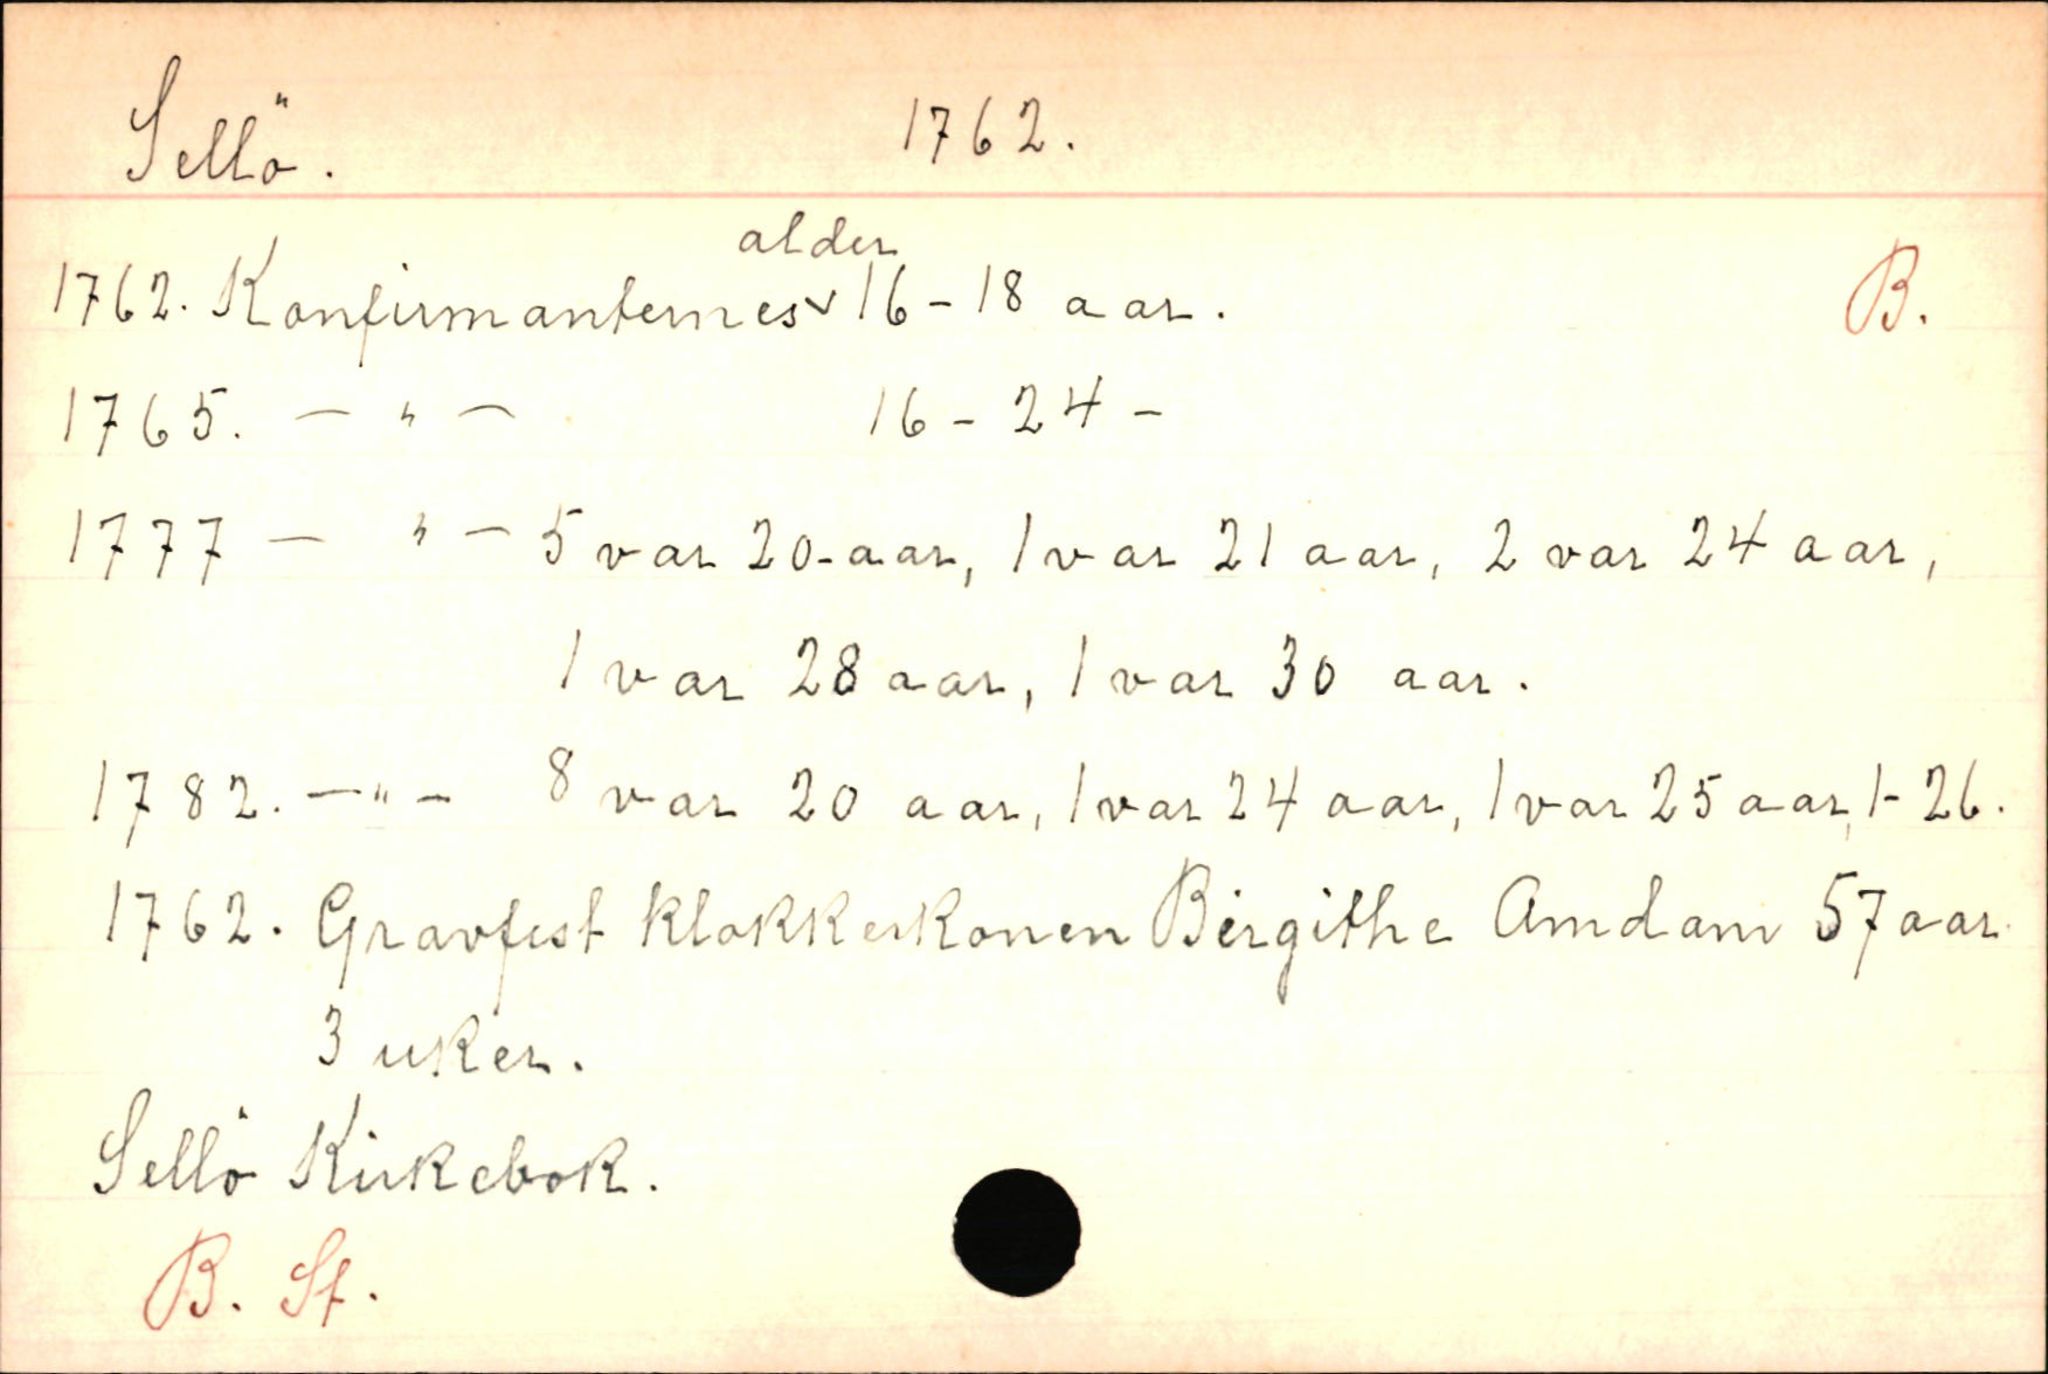 Sellö. 1762.
1762. Konfirmanternes alder 16-18 aar. B.
1765. - " - 16-24 -
1777 - " - 5 var 20-aar, 1 var 21 aar, 2 var 24 aar,
1 var 28 aar, 1 var 30 aar.
1782. - " - 8 var 20 aar, 1 var 24 aar, 1 var 25 aar, 1- 26.
1762. Gravfest klokkerkonen Birgithe Amdam 57 aar
3 uker.
Sellö Kirkebok.
B. St.